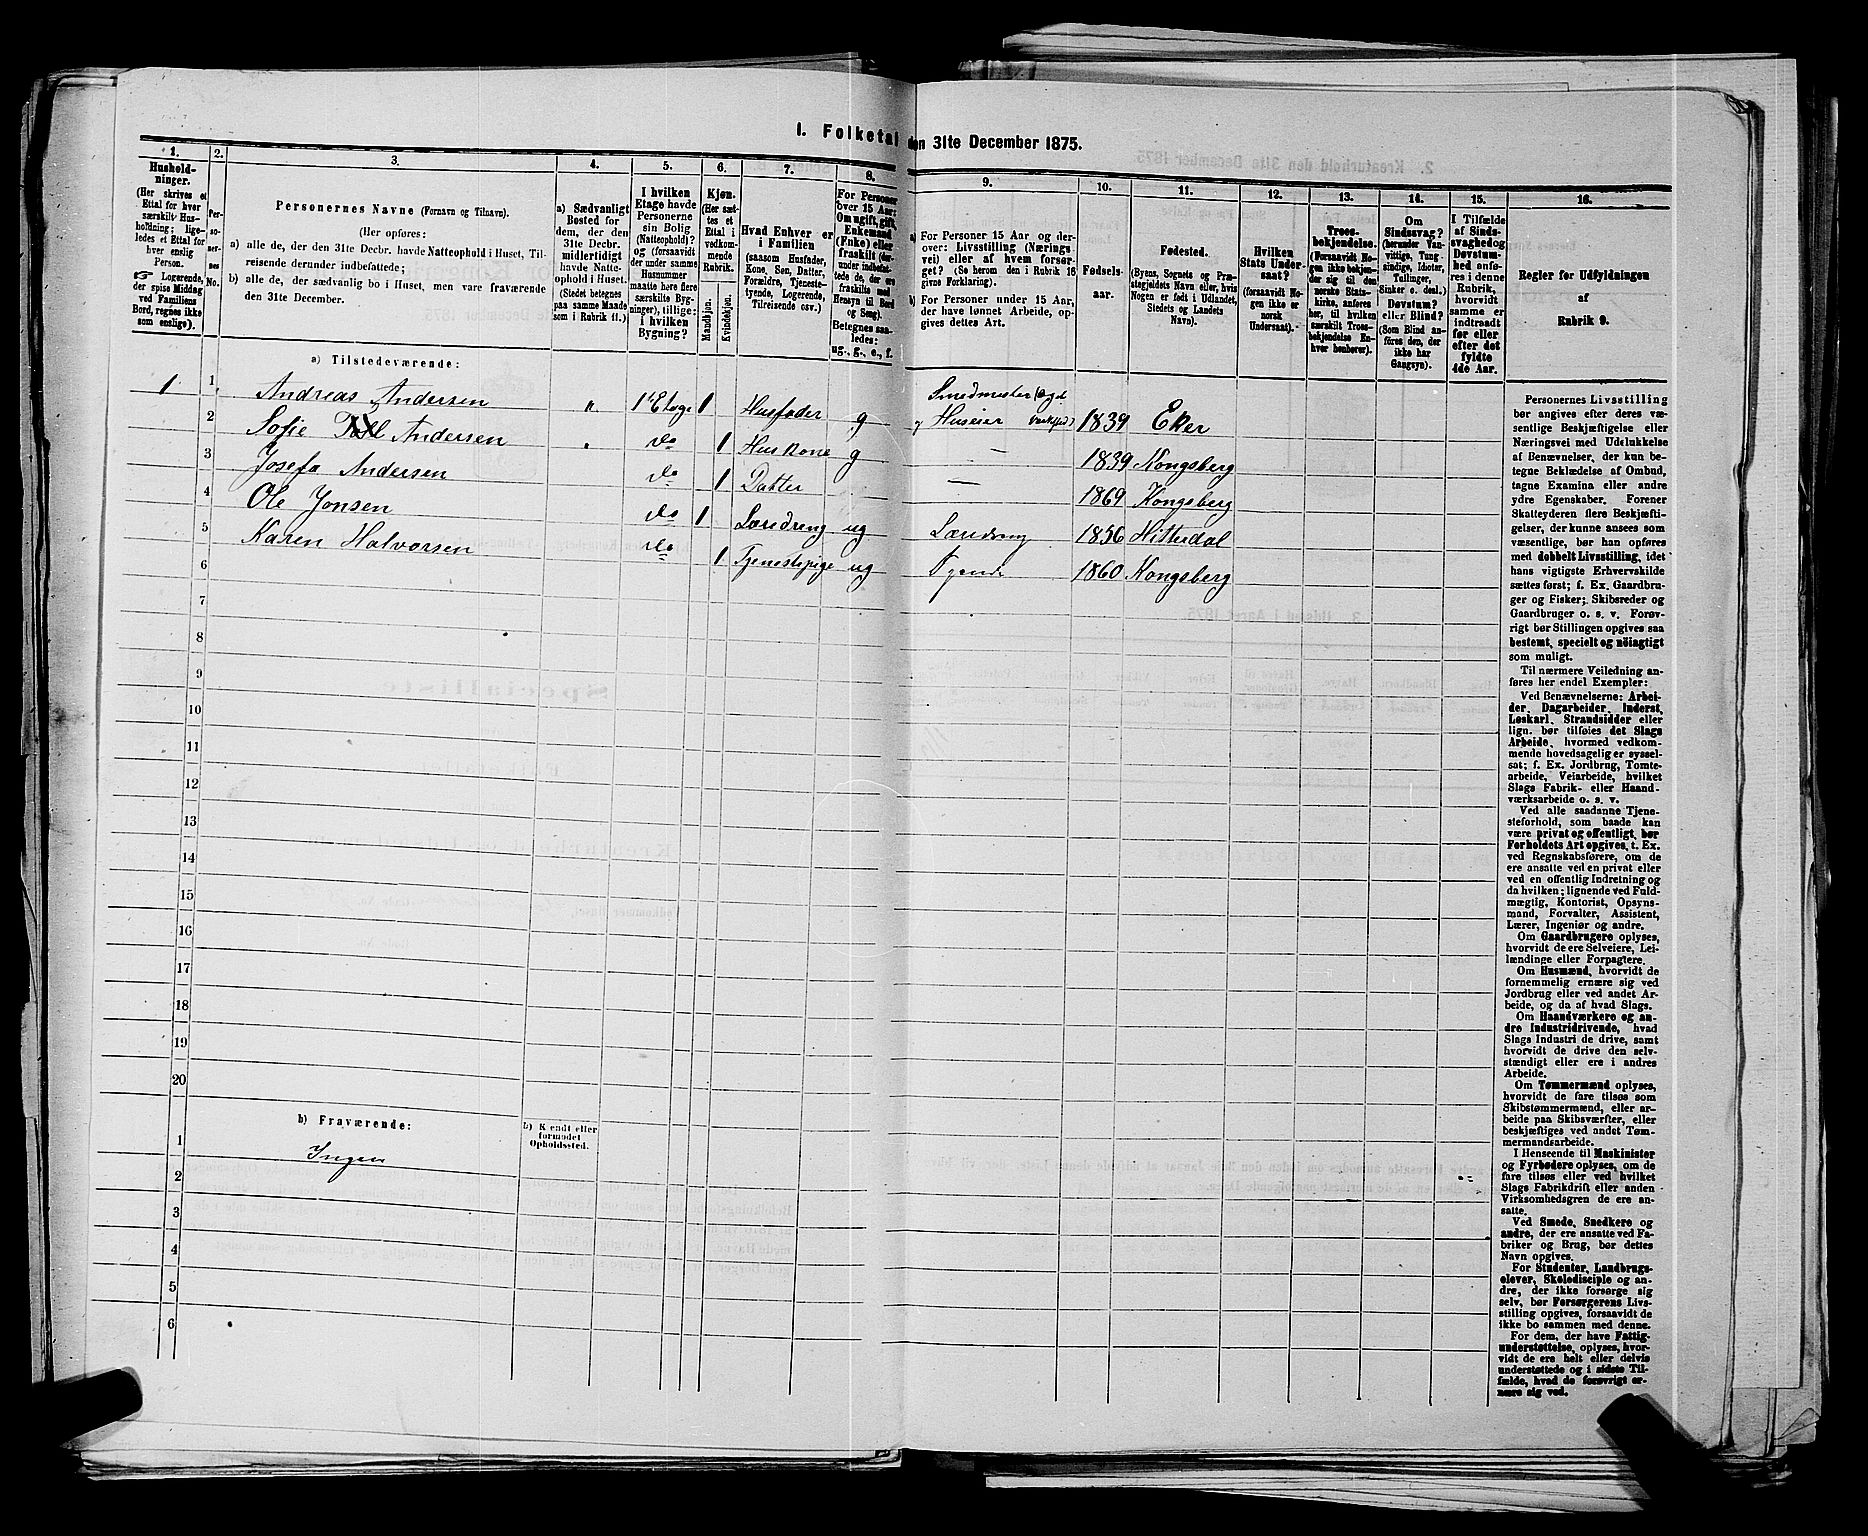 I. Folketal den 31te December 1875.
1.
Hushold-
ninger.
(Her skrives et
Ettal for hver
særskilt Hus-
holdning; lige-
ledes et Ettal for
hver enslig
Person.
☞ Logerende,
der spise Middag
ved Familiens
Bord, regnes ikke
som enslige).
2.
Per-
so-
ner-
nes
No.
3.
Personernes Navne (Fornavn og Tilnavn).
(Her opføres:
a) alle de, der den 31te Decbr. havde Natteophold i Huset, Til-
reisende derunder indbefattede;
b) alle de, der sædvanlig bo i Huset, men vare fraværende
den 31te December.
4.
a) Sædvanligt
Bosted for
dem, der den
31te Decbr.
midlertidigt
havde Natte-
ophold i Huset.
(Stedet betegnes
paa samme Maade
som i Rubrik 11.)
5.
I hvilken
Etage havde
Personerne
sin Bolig
(Natteophold)?
og (forsaavidt
der under samme
Husnummer
maatte høre flere
særskilte Byg-
ninger), tillige:
i hvilken
Bygning?
6.
Kjøn.
(Her sæt-
tes et
Ettal i
vedkom-
mende
Rubrik.
Mandkjøn.
Kvindekjøn.
7.
Hvad Enhver er
i Familien
(saasom Husfader,
Kone, Søn, Datter,
Forældre, Tjeneste-
tyende, Logerende,
Tilreisende osv.)
8.
For Personer
over 15 Aar:
Om ugift, gift,
Enkemand
(Enke) eller
fraskilt (der-
under indbefat-
tede de, der ere
fraskilte med
Hensyn til Bord
og Seng).
Betegnes saa-
ledes:
ug., g., e., f.
9.
a) For Personer 15 Aar og der-
over: Livsstilling (Nærings-
vei) eller af hvem forsør-
get? (Se herom den i Rubrik 16
givne Forklaring).
b) For Personer under 15 Aar,
der have lønnet Arbeide, op-
gives dettes Art.
10.
Fødsels-
aar.
11.
Fødested.
(Byens, Sognets og Præ-
stegjeldets Navn eller, hvis
Nogen er født i Udlandet,
Stedets og Landets
Navn).
12.
Hvilken
Stats Under-
saat?
(forsaavidt No-
gen ikke er
norsk
Undersaat).
13.
Troes-
bekjendelse.
(Forsaavidt No-
gen ikke bekjen-
der sig til den
norske Stats-
kirke, anføres
her, til hvilken
særskilt Troes-
bekjendelse En-
hver henhører).
14.
Om
Sindssvag?
(herunder Van-
vittige, Tung-
sindige, Idioter,
Tullinger,
Sinker o. desl.)
Døvstum?
eller Blind?
(Som Blind an-
føres den, der
ikke har
Gangsyn).
15.
I Tilfælde
af Sinds-
svaghed og
Døvstum-
hed anfø-
res i denne
Rubrik,
hvorvidt
samme er
indtraadt
før eller
efter det
fyldte
4de Aar.
16.
Regler for Udfyldningen
af
Rubrik 9.
a) Tilstedeværende:
1 1. Andreas Andersen " 1ste Etage 1 Husfader g Smedmester og Huseier 1839 Eker
2 Sofie Andersen " do 1 Huskone g — 1839 Kongsberg
3 Josefa Andersen do 1 Datter — 1869 Kongsberg
4 Ole Jonsen do 1 Læredreng ug Læredreng 1856 Hitterdal
5 Karen Halvorsen do 1 Tjenestepige ug Tyende 1860 Kongsberg
6
7
8
9
10
11
12
13
14
15
16
17
18
19
20
b) Fraværende:
b) Kjendt eller
formodet
Opholdssted.
1 Ingen
2
3
4
5
6
Personernes Livsstilling
bør angives efter deres væ-
sentlige Beskjæftigelse eller
Næringsvei med Udelukkelse
af Benævnelser, der kun be-
tegne Beklædelse af Ombud,
tagne Examina eller andre
ydre Egenskaber. Forener
Skatteyderen flere Beskjæfti-
gelser, der kunne ansees som
væsentlige, bør han opføres
med dobbelt Livsstilling, idet
hans vigtigste Erhvervskilde
sættes først; f. Ex. Gaardbru-
ger og Fisker; Skibsreder og
Gaardbruger o. s. v. Forøv-
rigt bør Stillingen opgives saa
bestemt, specielt og nöiagtigt
som muligt.
Til nærmere Veiledning an-
føres her endel Exempler:
Ved Benævnelserne: Arbei-
der, Dagarbeider, Inderst,
Løskarl, Strandsidder eller
lign. bør tilføies det Slags
Arbeide, hvormed vedkom-
mende hovedsagelig er syssel-
sat; f. Ex. Jordbrug, Tomte-
arbeide, Veiarbeide, hvilket
Slags Fabrik- eller Haand-
værksarbeide o. s. v.
Ved alle saadanne Tjene-
steforhold, som baade kan
være privat og offentligt, bør
Forholdets Art opgives, t. Ex.
ved Regnskabsførere, om de
ere ansatte ved en privat eller
ved en offentlig Indretning og
da hvilken; lignende ved Fuld-
mægtig, Kontorist, Opsyns-
mand, Forvalter, Assistent,
Lærer, Ingeniør og andre.
Om Gaardbrugere oplyses,
hvorvidt de ere Selveiere, Lei-
lændinge eller Forpagtere.
Om Husmænd, hvorvidt de
fornemmelig ernære sig ved
Jordbrug eller ved andet Ar-
beide, og da af hvad Slags.
Om Haandværkere og an-
dre Industridrivende, hvad
Slags Industri de drive, samt
hvorvidt de drive den selv-
stændigt eller ere i andres
Arbeide.
Om Tømmermænd oplyses,
hvorvidt de fare tilsøs som
Skibstømmermænd, eller ar-
beide paa Skibsværfter, eller
beskjæftiges ved andet Tøm-
mermandsarbeide.
I Henseende til Maskinister
og Fyrbødere oplyses, om de
fare tilsøs eller ved hvilket
Slags Fabrikdrift eller anden
Virksomhedsgren de ere an-
satte.
Ved Smede, Snedkere og
andre, der ere ansatte ved Fa-
briker og Brug, bør dettes
Navn opgives.
For Studenter, Landbrugs-
elever, Skoledisciple og an-
dre, der ikke forsørge sig
selv, bør Forsørgerens Livs-
stilling opgives, forsaavidt de
ikke bo sammen med denne.
For dem, der have Fattig-
understøttelse, oplyses, hvor-
vidt de ere helt eller delvis
understøttede og i sidste Til-
fælde, hvad de forøvrigt er-
nære sig ved.